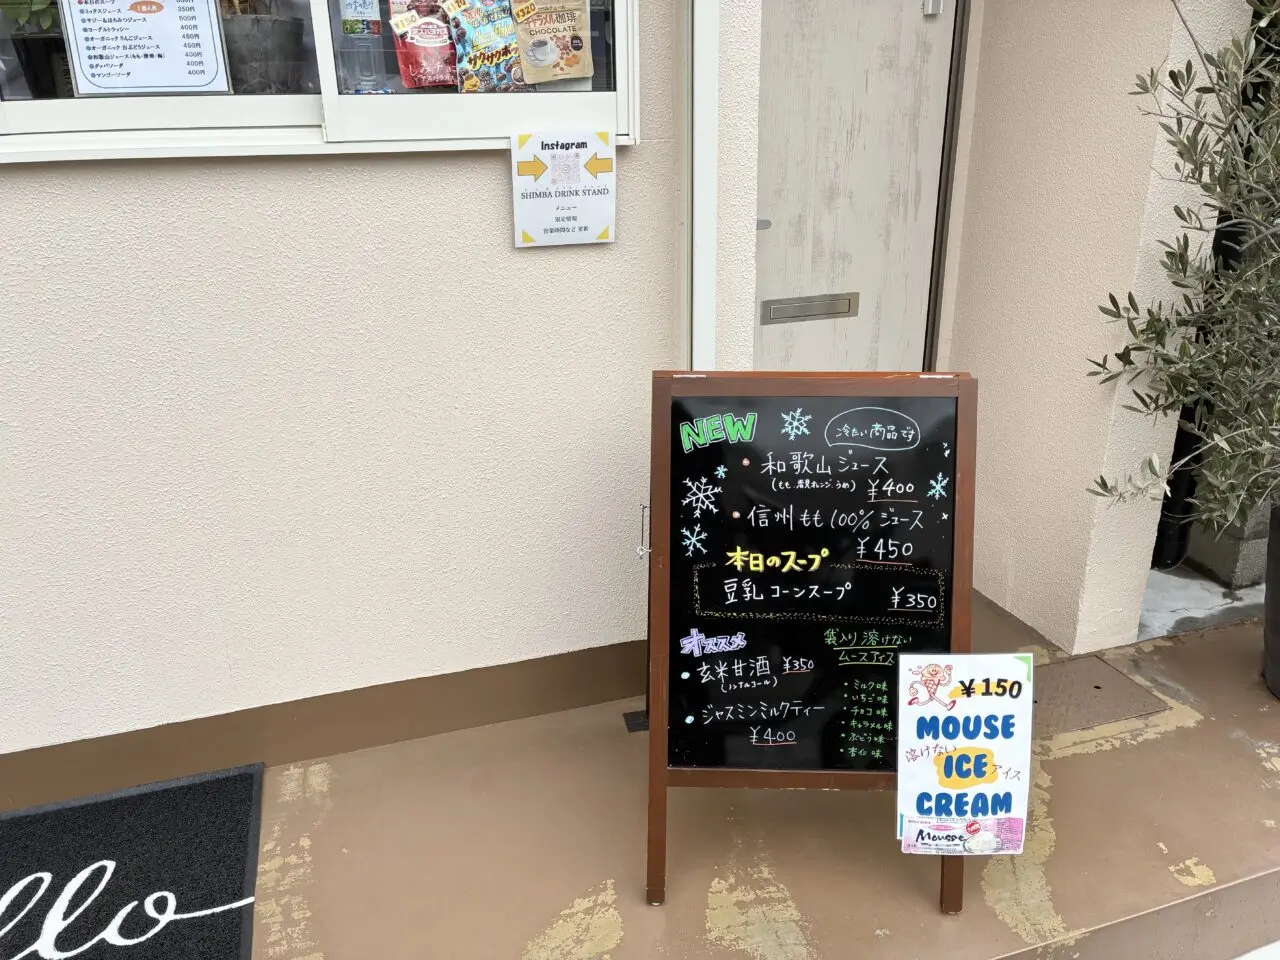 ●本日のスープ 350円
●ミックスジュース 350円
●サジー&はちみつジュース 500円
●ヨーグルトラッシー 400円
●オーガニックりんごジュース 450円
●オーガニック白ぶどうジュース 450円
●和歌山ジュース(もも・蜜柑・梅) 400円
●グァバソーダ 400円
●マンゴーソーダ 400円
¥320
キャラメル珈琲
CHOCOLATE
Instagram
SHIMBA DRINK STAND
メニュー
限定情報
営業時間など更新
NEW
冷たい商品です
・和歌山ジュース
¥400
・信州もも100%ジュース
¥450
本日のスープ
豆乳コーンスープ ¥350
オススメ
・玄米甘酒 ¥350
(ノンアルコール)
・ジャスミンミルクティー
¥400
袋入り溶けない
ムースアイス
・ミルク味
・いちご味
・チョコ味
・キャラメル味
・ぶどう味
・杏仁味
¥150
MOUSE
溶けない
ICE アイス
CREAM
Mousse
llo